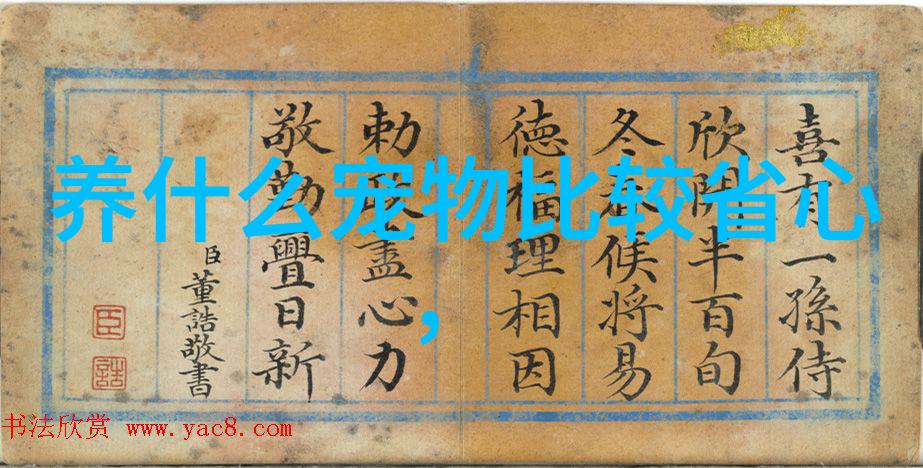 养什么宠物比较省心
，
喜有一孫侍
欣開半百旬
冬春候将易
德福理相因
勅盡心力
敬勤日新
臣董誥敬書
臣
誥
书法欣赏 www.yac8.com